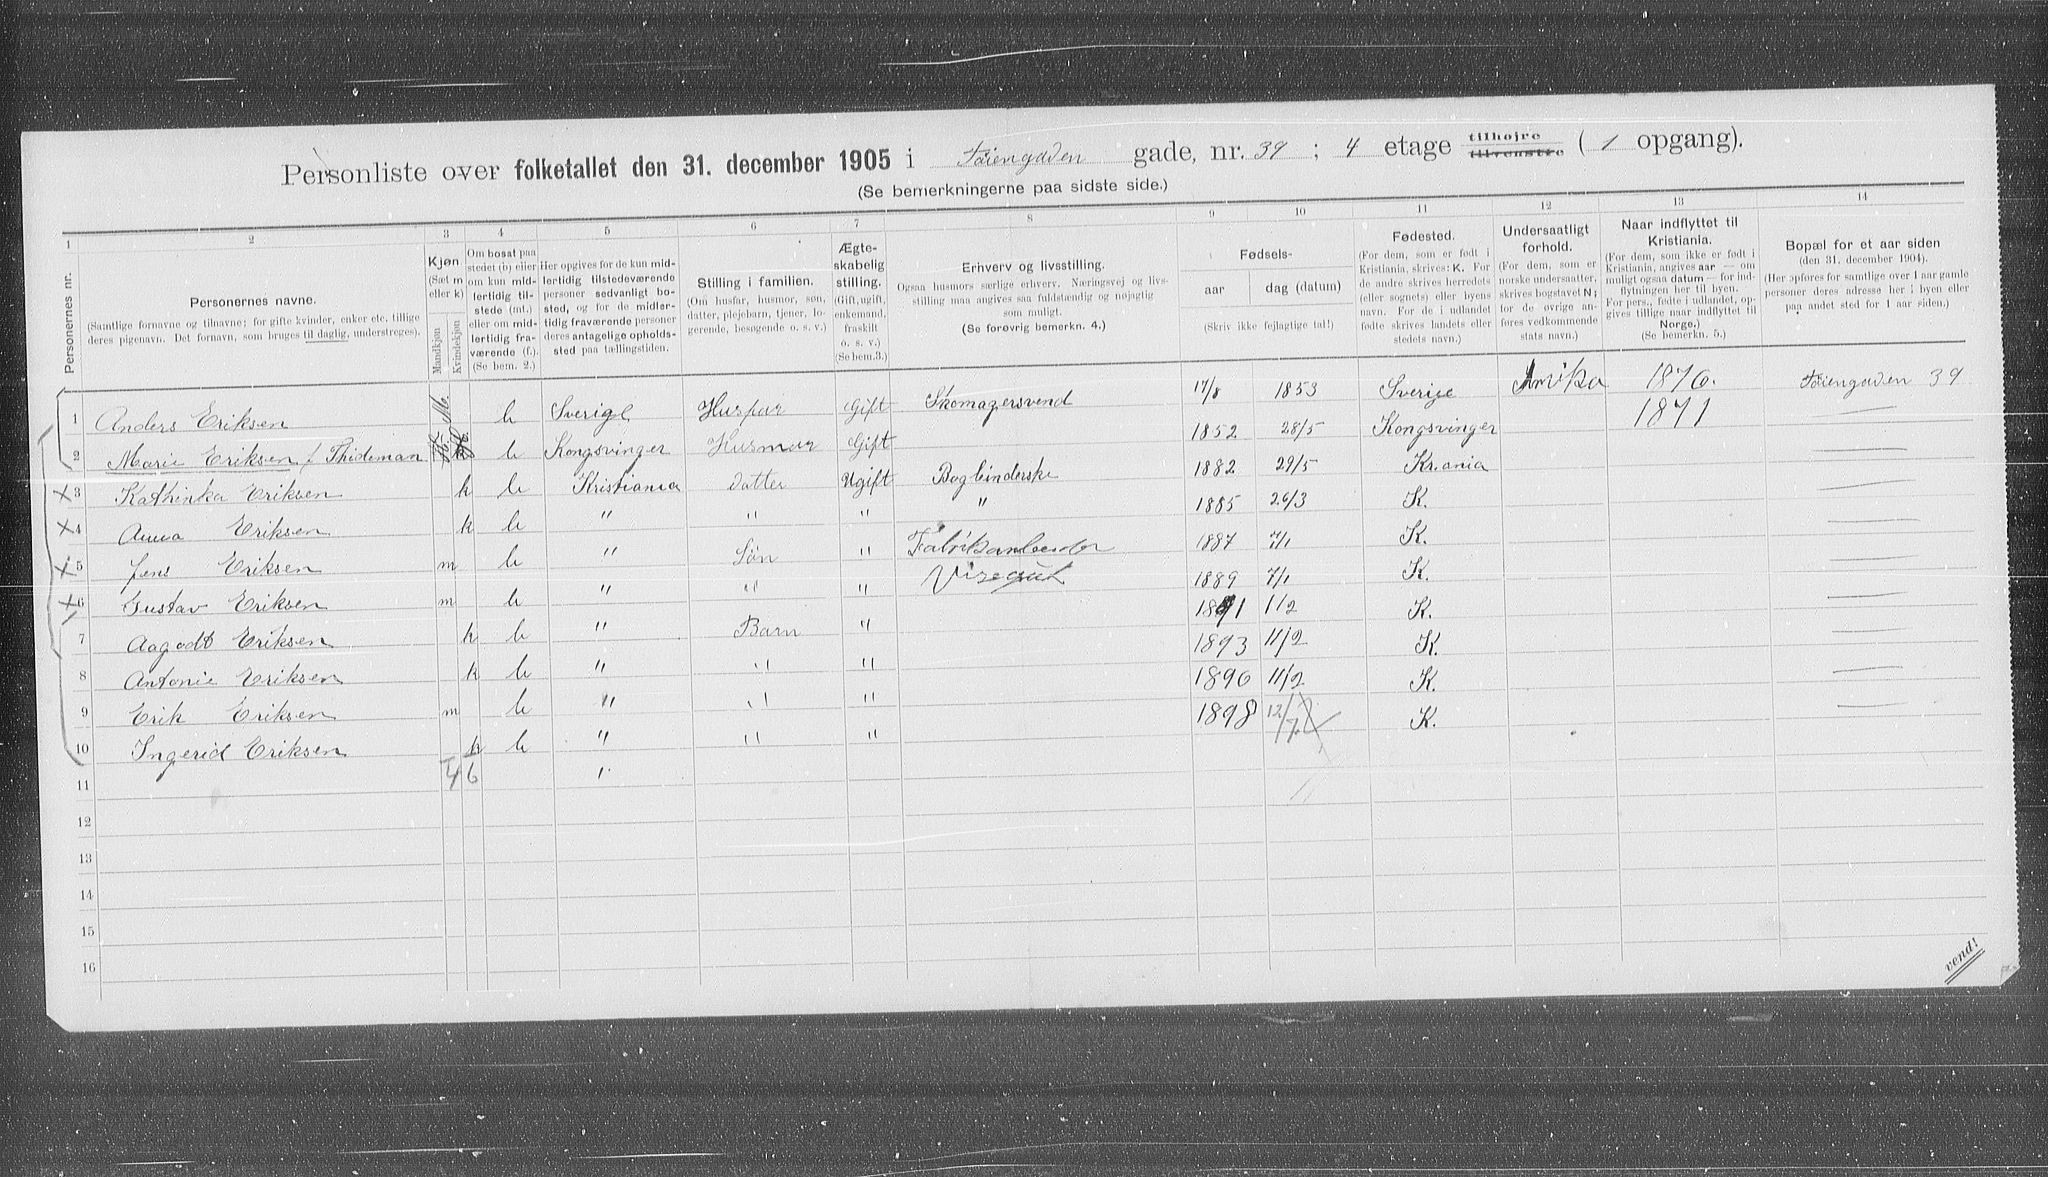 Personliste over folketallet den 31. december 1905 i Tøiengaden gade, nr. 39 ; 4 etage tilhøjre tilvenstre ( 1 opgang).
(Se bemerkningerne paa sidste side.)
1 2 3 4 5 6 7 8 9 10 11 12 13 14
Personernes nr.
Personernes navne.
(Samtlige fornavne og tilnavne; for gifte kvinder, enker etc. tillige
deres pigenavn. Det fornavn, som bruges til daglig, understreges).
Kjøn
(Sæt m
eller k)
Mandkjøn
Kvindekjøn
Om bosat paa
stedet (b) eller
om kun mid-
lertidig til-
stede (mt.)
eller om mid-
lertidig fra-
værende (f.).
(Se bem. 2.)
Her opgives for de kun mid-
lertidig tilstedeværende
personer sedvanligt bo-
sted, og for de midler-
tidig fraværende personer
deres antagelige opholds-
sted paa tællingstiden.
Stilling i familien.
(Om husfar, husmor, søn,
datter, plejebarn, tjener, lo-
gerende, besøgende o. s. v.)
Ægte-
skabelig
stilling.
(Gift, ugift,
enkemand,
fraskilt
o. s. v.)
(Se bem.3.)
Erhverv og livsstilling.
Ogsaa husmors særlige erhverv. Næringsvej og livs-
stilling maa angives saa fuldstændig og nøjagtig
som muligt.
(Se forøvrig bemerkn. 4.)
Fødsels-
aar dag (datum)
(Skriv ikke fejlagtige tal!)
Fødested.
(For dem, som er født i
Kristiania, skrives: K. For
de andre skrives herredets
(eller sognets) eller byens
navn. For de i udlandet
fødte skrives landets eller
stedets navn.)
Undersaatligt
forhold.
(For dem, som er
norske undersaatter,
skrives bogstavet N;
for de øvrige an-
føres vedkommende
stats navn.)
Naar indflyttet til
Kristiania.
(For dem, som ikke er født i
Kristiania, angives aar — om
muligt ogsaa datum — for ind-
flytningen her til byen.
For pers., fødte i udlandet, op-
gives tillige naar indflyttet til
Norge.)
(Se bemerkn. 5.)
Bopæl for et aar siden
(den 31. december 1904).
(Her opføres for samtlige over 1 aar gamle
personer deres adresse her i byen eller
paa andet sted for 1 aar siden.)
1 Anders Eriksen M. b Sverige Husfar Gift Skomagersvend 17/8 1853 Sverige 1876. Tøiengaden 39
2 Marie Eriksen f Thideman b Kongsvinger Husmor Gift 1852 28/5 Kongsvinger 1871 —
x 3 Kathinka Eriksen k b Kristiania datter Ugift Bogbinderske 1882 29/5 Kr.ania —
x 4 Anna Eriksen k b " " " " 1885 26/3 K. —
x 5 Jens Eriksen m b " Søn " Fabrikarbeider 1887 7/1 K. —
x 6 Gustav Eriksen m b " " " Visegut 1889 7/1 K. —
7 Aagodt Eriksen k b " Barn " 1891 1/2 K. —
8 Antonie Eriksen k b " " " 1893 11/2 K. —
9 Erik Eriksen m b " " " 1896 11/2 K. —
10 Ingerid Eriksen k b " " " 1898 12/7 K. —
11 4 6
12
13
14
15
16
vend!